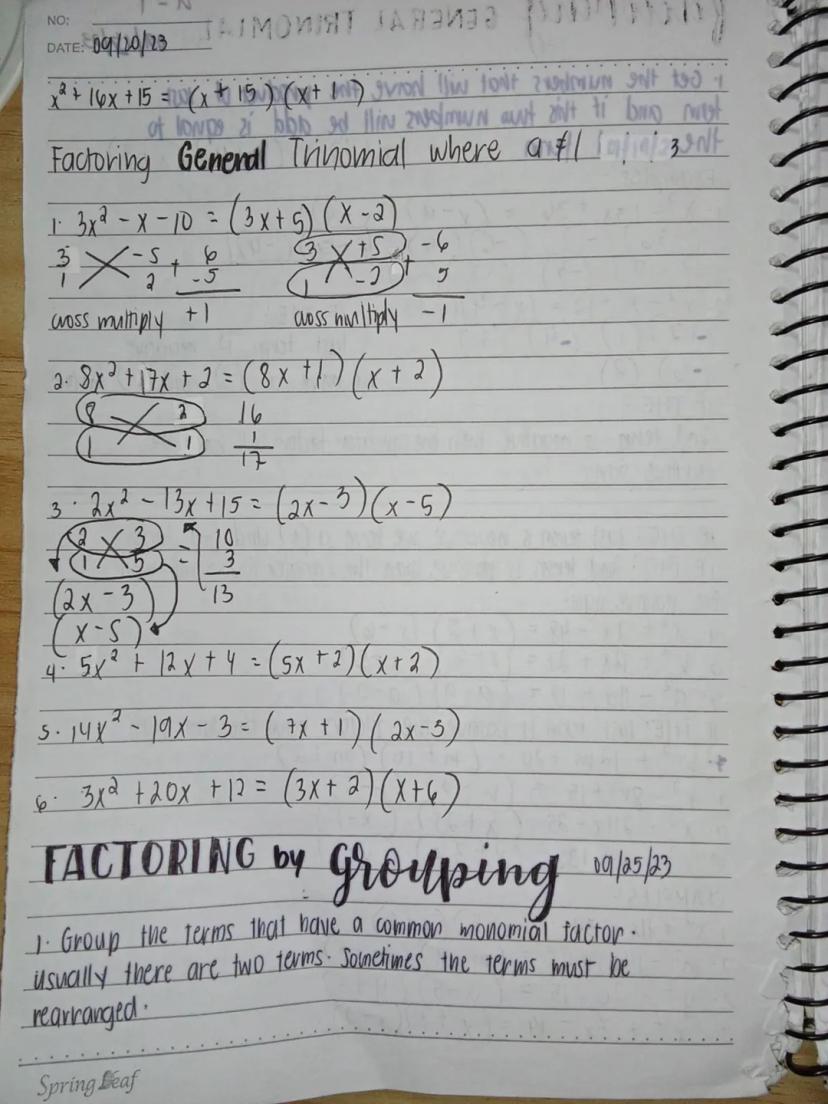 NO:
DATE: 09/20/23
x² + 16x + 15 = (x + 15) (x + 1)
Factoring General Trinomial where a ≠ 1
1. 3x² - x - 10 = (3x+5) (x-2)
3 -5 + 6
1 2 -5
cross multiply +1
3 +5 + -6
1 -2 5
cross multiply -1
2. 8x² + 17x + 2 = (8x +1) (x + 2)
8 2 16
1 1 1
17
3. 2x² - 13x + 15 = (2x-3)(x-5)
2 3 = 10
1 5 3
(2x - 3) 13
(x-5)
4. 5x² + 12x + 4 = (5x +2)(x+2)
5. 14x² - 19x - 3 = (7x +1) (2x-3)
6. 3x² + 20x + 12 = (3x+2)(x+6)
FACTORING by grouping 09/25/23
1. Group the terms that have a common monomial factor.
usually there are two terms. Sometimes the terms must be
rearranged.
Spring Leaf